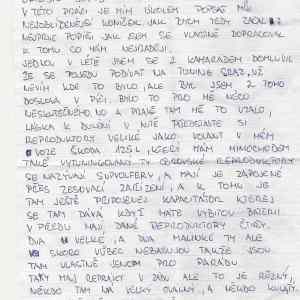 V TÉTO PRÁCI JE MÝM ÚKOLEM POPSAT MŮJ
NEJOBLÍBENĚJŠÍ KONÍČEK. JAK BYCH TEDY ZAČAL
NEJPRVE POPÍŠI JAK JSEM SE VLASTNĚ DOPRACOVAL
K TOMU CO MÁM NEJRADĚJI.
JEDNOU V LÉTĚ JSEM SE Z KAMARÁDEM DOMLUVIL
ŽE SE POJEDU PODÍVAT NA TUNING SRAZ, UŽ
NEVÍM KDE TO BYLO, ALE BYL JSEM Z TOHO
DOSLOVA V PYČI, BYLO TO PRO MĚ NĚCO
NESKUTEČNÉHO NO A PRÁVĚ TAM MĚ TO VZALO,
LÁSKA K DUNĚNÍ A
REPRODUKTORY VELIKÉ JAKO VOLANT V MÉM
VOZE ŠKODA 125L, KTERÝ MÁM MIMOCHODEM
TAKÉ VYTUNINGOVANÝ TY OBROVSKÉ REPRODUKTORY
SE NAZÝVAJÍ SUPVOLFERY, A MAJÍ JE ZAPOJENÉ
PŘES ZESILOVACÍ ZAŘÍZENÍ, A K TOMU JE
TAM JEŠTĚ PŘIPOJENEJ KAPACITÁTOR KTEREJ
SE TAM DÁVÁ KDYŽ MÁTE VYBITOU BATERII
V PŘEDU MAJÍ DANÉ REPRODUKTORY ČTYŘY.
DVA VELKÉ, A DVA MALINKÉ TY ALE
SKORO VŮBEC NEBASUJOU TAKŽE JSOU
TAM VLASTNĚ JENOM PRO PARÁDU
TAKY MAJ REPRÁKY V ZADU ALE TO JE RŮZNÝ,
NĚKDO TAM NA VELKÝ OVÁLNÝ, A NĚKDO KULATÝ